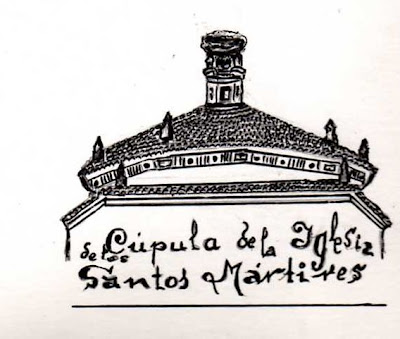 Cúpula de la Iglesia
de los Santos Mártires